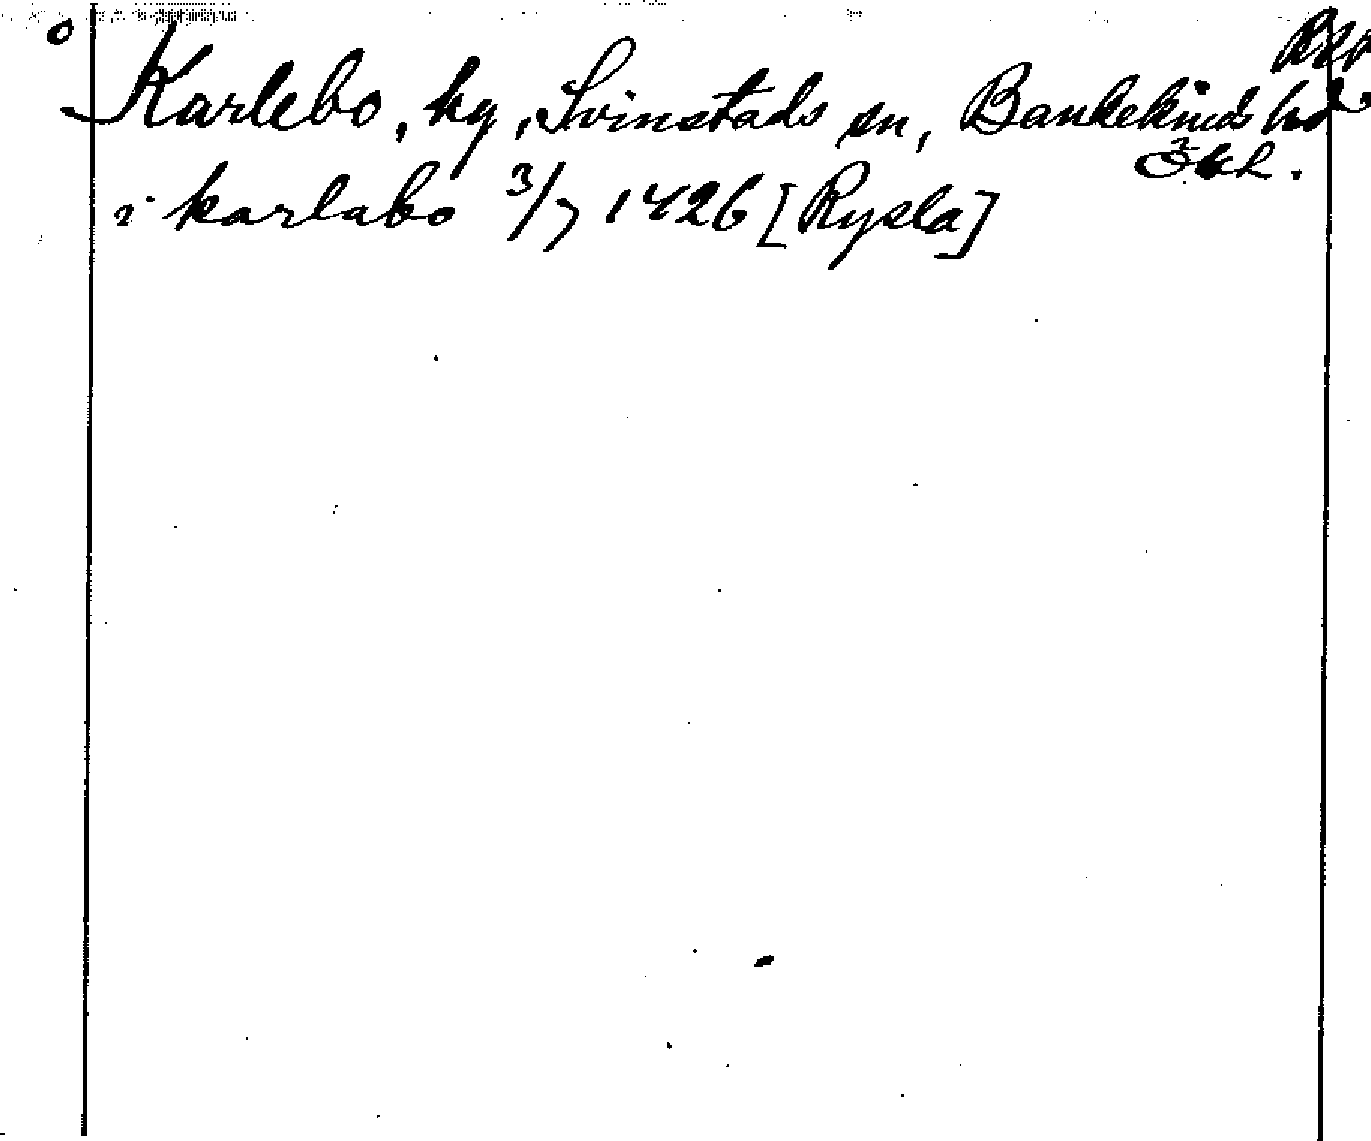 Karlebo, by, Svinstads sn, Bankekinds hd
i karlabo 3/7 1426 [Rysla]